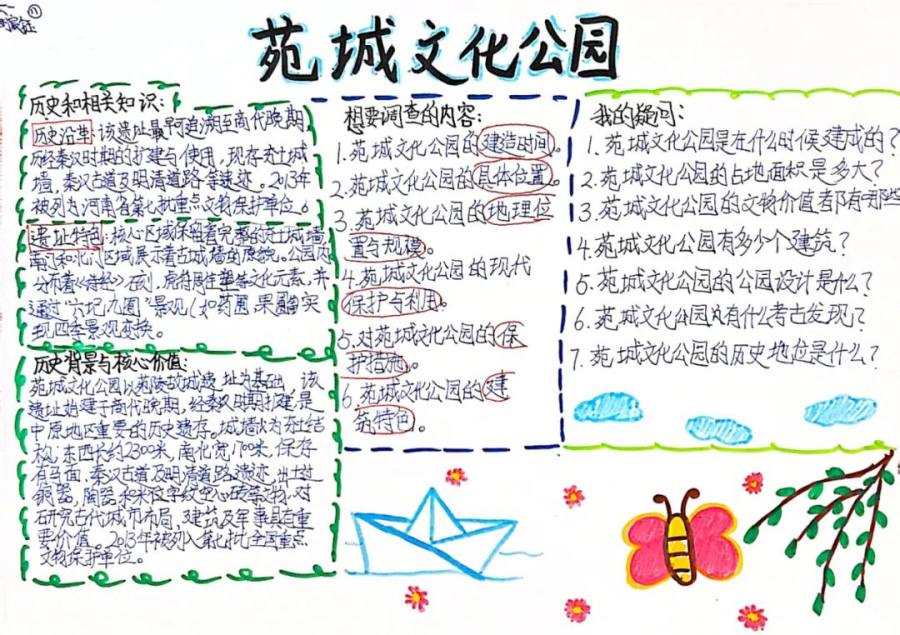 苑城文化公园
历史和相关知识：
历史沿革：该遗址最早可追溯至商代晚期，
历经秦汉时期的扩建与使用，现存夯土城
墙、秦汉古道及明清道路等遗迹。2013年
被列为河南省第七批重点文物保护单位。
遗址特色：核心区域保留着完整的夯土城墙
南门和北门区域展示着古城墙的原貌。公园内
分布着《诗经》石刻，虎符周柱等文化元素，并
通过“六圮九囿”景观（如药圃、果圃实
现四季景观变换。
历史背景与核心价值：
苑城文化公园以苑陵故城遗址为基础，该
遗址始建于商代晚期，经秦汉时期扩建是
中原地区重要的历史遗存。城墙以为夯土结
构，东西长约2300米，南北宽1700米，保存
有马面、秦汉古道及明清道路遗迹，出土过
铜器，陶器
研究古代城市布局，建筑及军事具有重
要价值。2013年被列入第七批全国重点
文物保护单位。
想要调查的内容：
1.苑城文化公园的建造时间。
2.苑城文化公园的具体位置。
3.苑城文化公园的地理位
置与规模。
4.苑城文化公园的现代
保护与利用。
5.对苑城文化公园的保
护措施。
6.苑城文化公园的建
筑特色。
我的疑问：
1.苑城文化公园是在什么时候建成的？
2.苑城文化公园的占地面积是多大？
3.苑城文化公园的文物价值都有哪些
4.苑城文化公园有多少个建筑？
5.苑城文化公园的公园设计是什么？
6.苑城文化公园内有什么考古发现？
7.苑城文化公园的历史地位是什么？